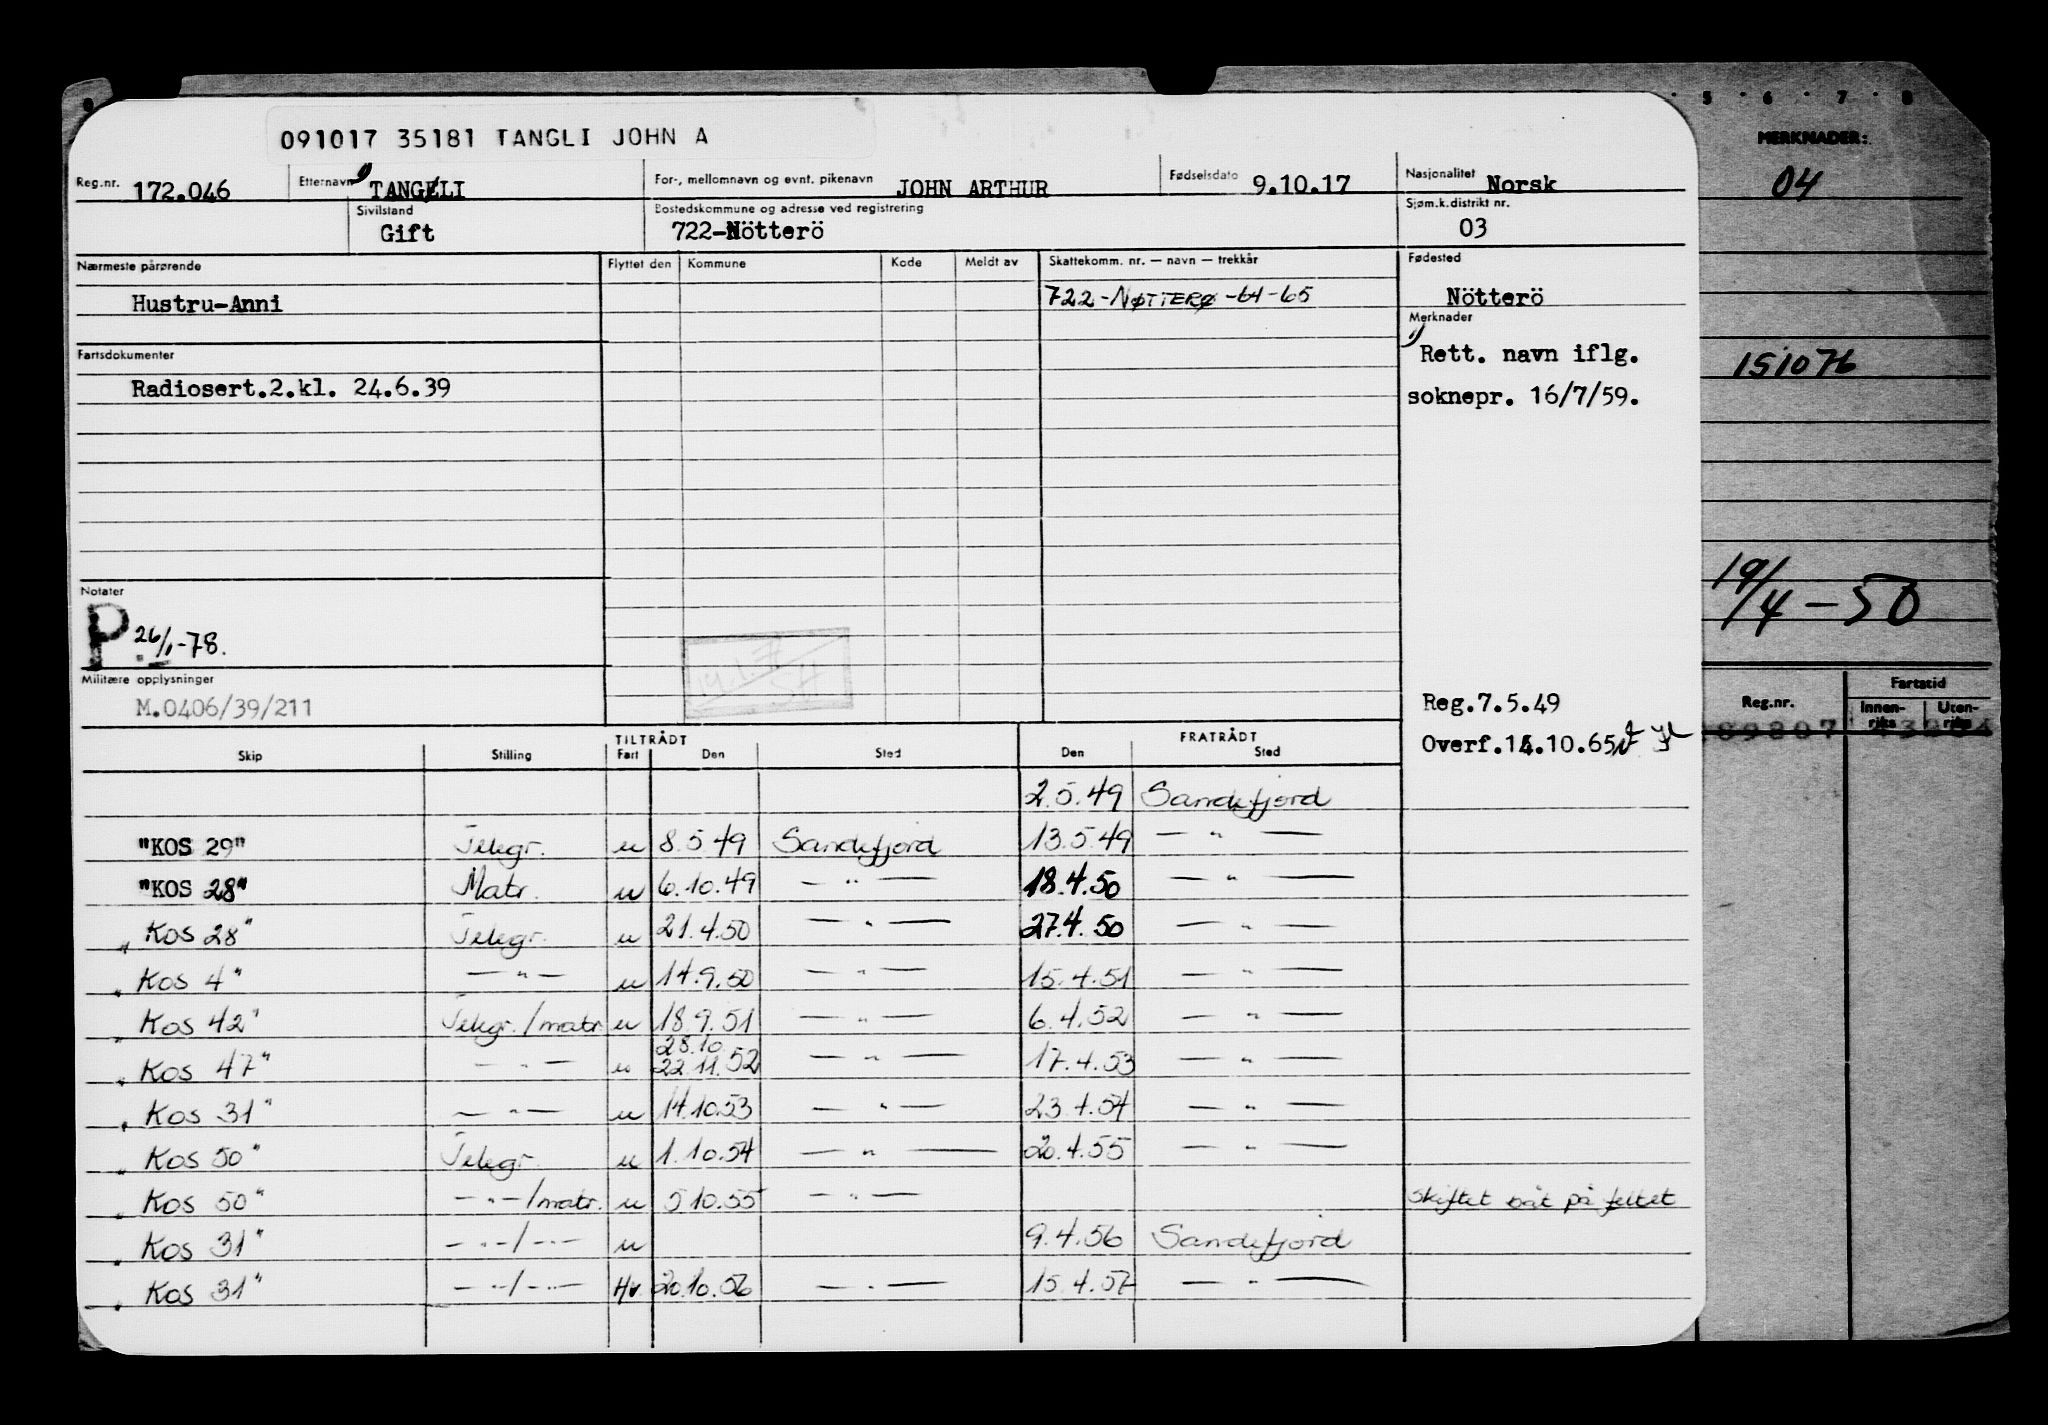 091017 35181 TANGLI JOHN A
Reg.nr. 172.046 Etternavn 1) TANGELI For-, mellomnavn og evnt. pikenavn JOHN ARTHUR Fødselsdato 9.10.17 Nasjonalitet Norsk
Sivilstand Gift Bostedskommune og adresse ved registrering 722-Nötterö Sjøm.k.distrikt nr. 03
Nærmeste pårørende Flyttet den Kommune Kode Meldt av Skattekomm. nr. — navn — trekkår Fødested
Hustru-Anni 722-NØTTERØ-64-65 Nötterö
Merknader
1) Rett. navn iflg.
soknepr. 16/7/59.
Fartsdokumenter
Radiosert.2.kl. 24.6.39
Notater
P 26/1-78.
Militære opplysninger
M.0406/39/211
Reg.7.5.49
Overf.14.10.65
TILTRÅDT FRATRÅDT
Skip Stilling Fart Den Sted Den Sted
2.5.49 Sandefjord
"KOS 29" Telegr. u 8.5.49 Sandefjord 13.5.49 — " —
"KOS 28" Matr. u 6.10.49 — " — 18.4.50 — " —
„ Kos 28" Telegr. u 21.4.50 — " — 27.4.50 — " —
„ Kos 4" — " — u 14.9.50 — " — 15.4.51 — " —
„ Kos 42" Telegr./matr u 18.9.51 — " — 6.4.52 — " —
28.10.
„ Kos 47" — " — u 22.11.52 — " — 17.4.53 — " —
„ Kos 31" — " — u 14.10.53 — " — 23.4.54 — " —
„ Kos 50" Telegr. u 1.10.54 — " — 20.4.55 — " —
„ Kos 50" — " —/matr. u 5.10.55 — " — skiftet båt på feltet
„ Kos 31" — " —/— " — u 9.4.56 Sandefjord
„ Kos 31" — " —/— " — Hv. 20.10.56 — " — 15.4.57 — " —
5 6 7 8
MERKNADER:
04
151076
19/4-50
Reg.nr. Fartstid
Innen-riks Uten-riks